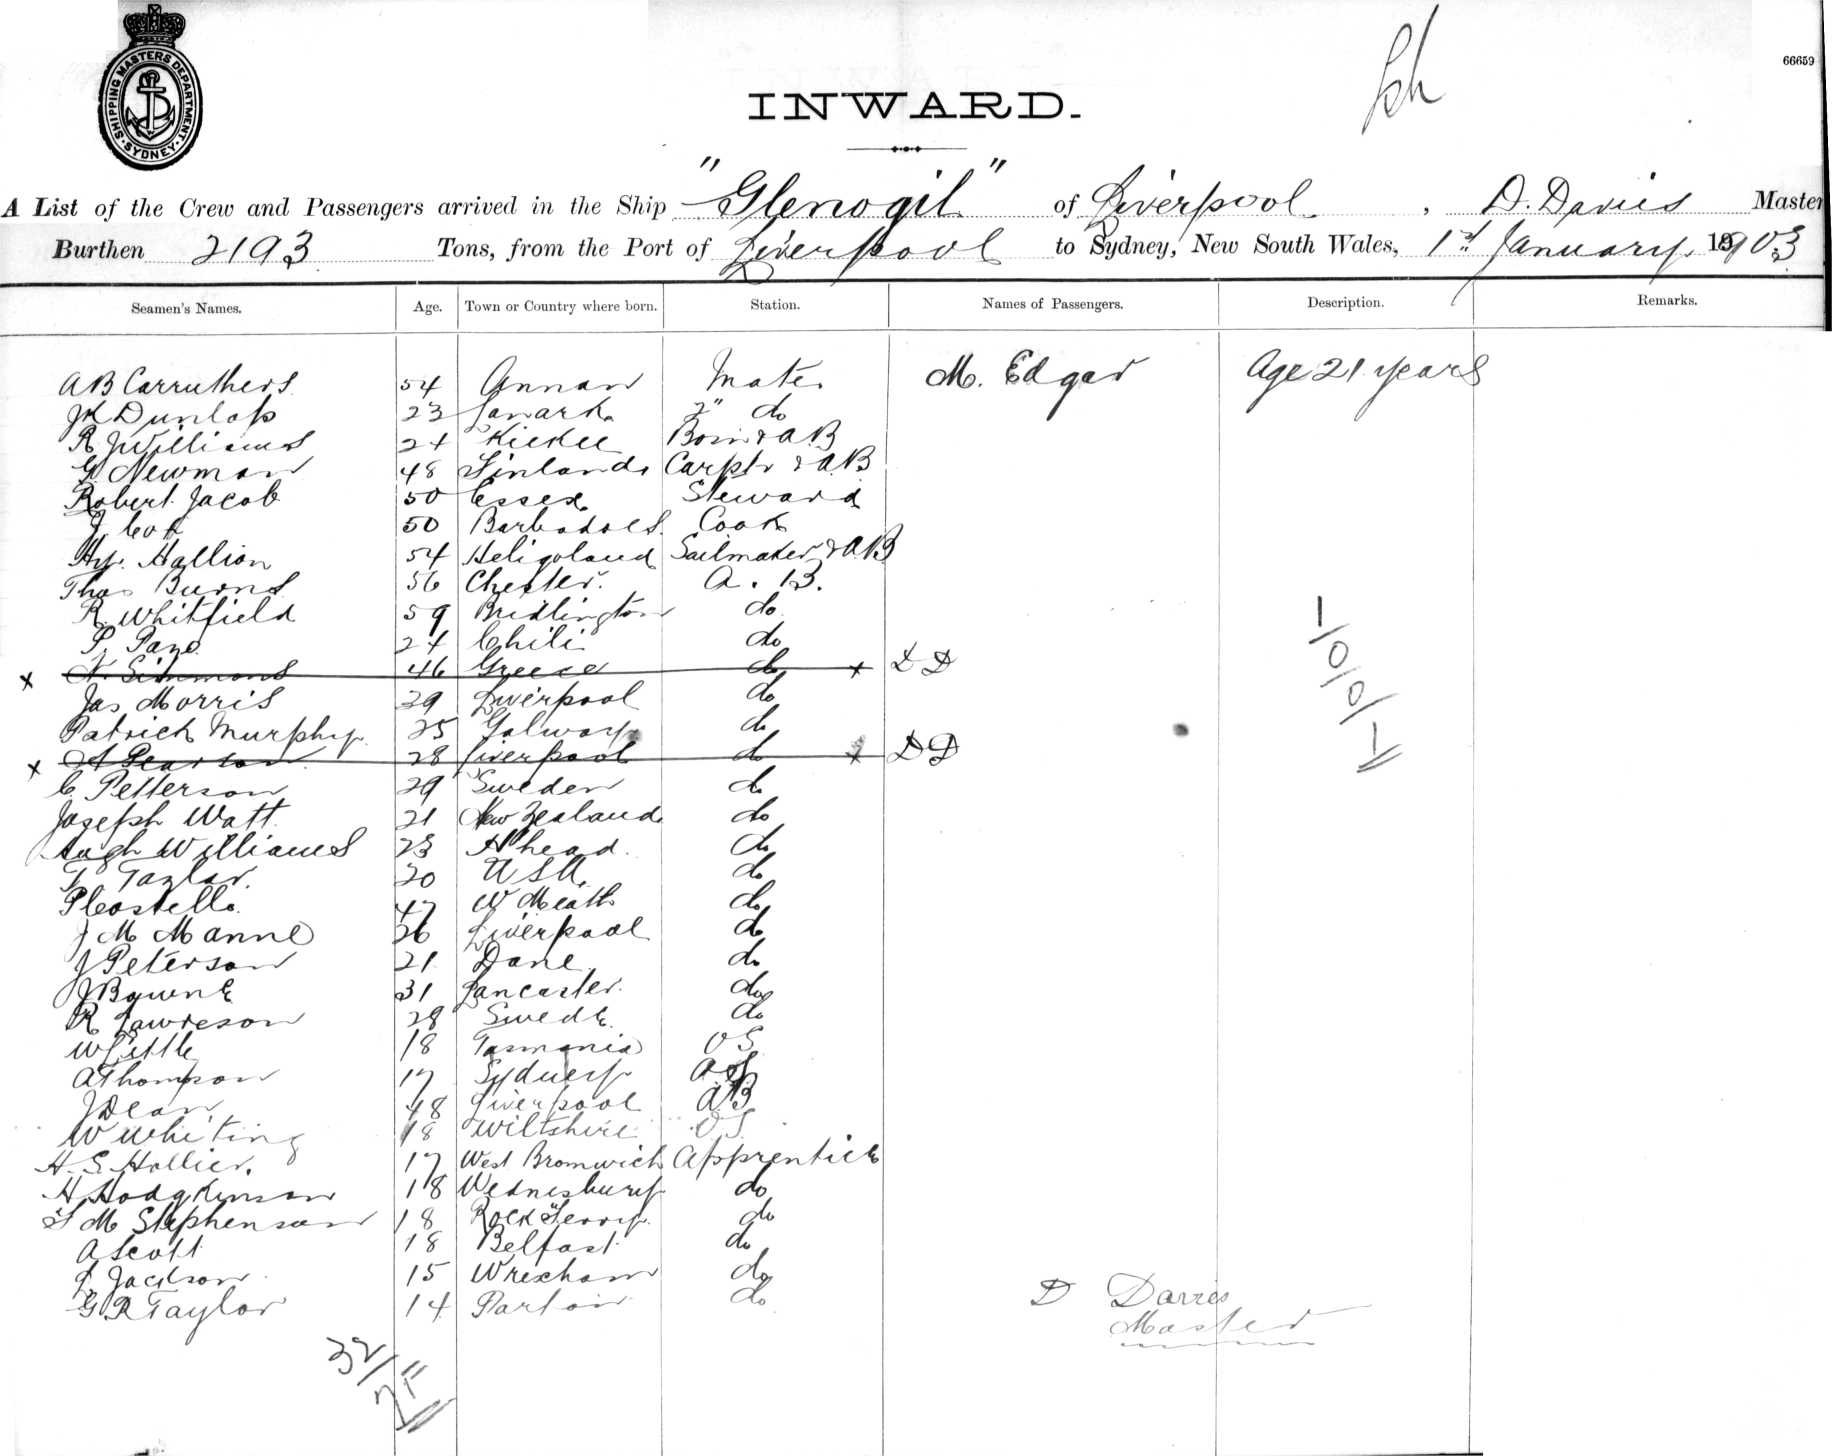 SHIPPING MASTERS DEPARTMENT. SYDNEY
66659
INWARD.
A List of the Crew and Passengers arrived in the Ship "Glenogil" of Liverpool, D. Davies Master
Burthen 2193 Tons, from the Port of Liverpool to Sydney, New South Wales, 1st January 1903
Seamen's Names. Age. Town or Country where born. Station. Names of Passengers. Description. Remarks.
A B Carruthers 54 Annan Mate M. Edgar Age 21 years
J K Dunlop 23 Lanark 2" do
R J Williams 24 Bosn & A.B
G Newman 48 Finland Carptr & A.B
Robert Jacob 50 Essex Steward
J Cox 50 Barbadoes Cook
Hy. Hallion 54 Heligoland Sailmaker & A.B
Thos Burns 56 Chester. A. B.
R. Whitfield 59 Bridlington do
P. 24 Chili do
x N. Simmons 46 Greece do x D D
Jas Morris 29 Liverpool do
Patrick Murphy 25 Galway do
x A Pearson 28 Liverpool do x D D
C. Petterson 29 Sweden do
Joseph Watt 21 New Zealand do
Hugh Williams 23 A'head. do
T Taylor. 20 USA. do
P Costello. 47 W Meath do
J M Manne 26 Liverpool do
J Peterson 21 Dane do
J Bourne 31 Lancaster. do
R Lawreson 28 Swede do
W Little 18 Tasmania OS
A Thompson 17 Sydney
J Dean 48 Liverpool AB
W Whiting 18 Wiltshire OS
H. S. Hollier. 17 West Bromwich Apprentice
H Hodgkinson 18 Wednesbury do
F M Stephenson 18 Rock Ferry. do
A Scott 18 Belfast do
L Jackson 15 Wrexham do
G R Taylor 14 Parton do
D Davies
Master
32/